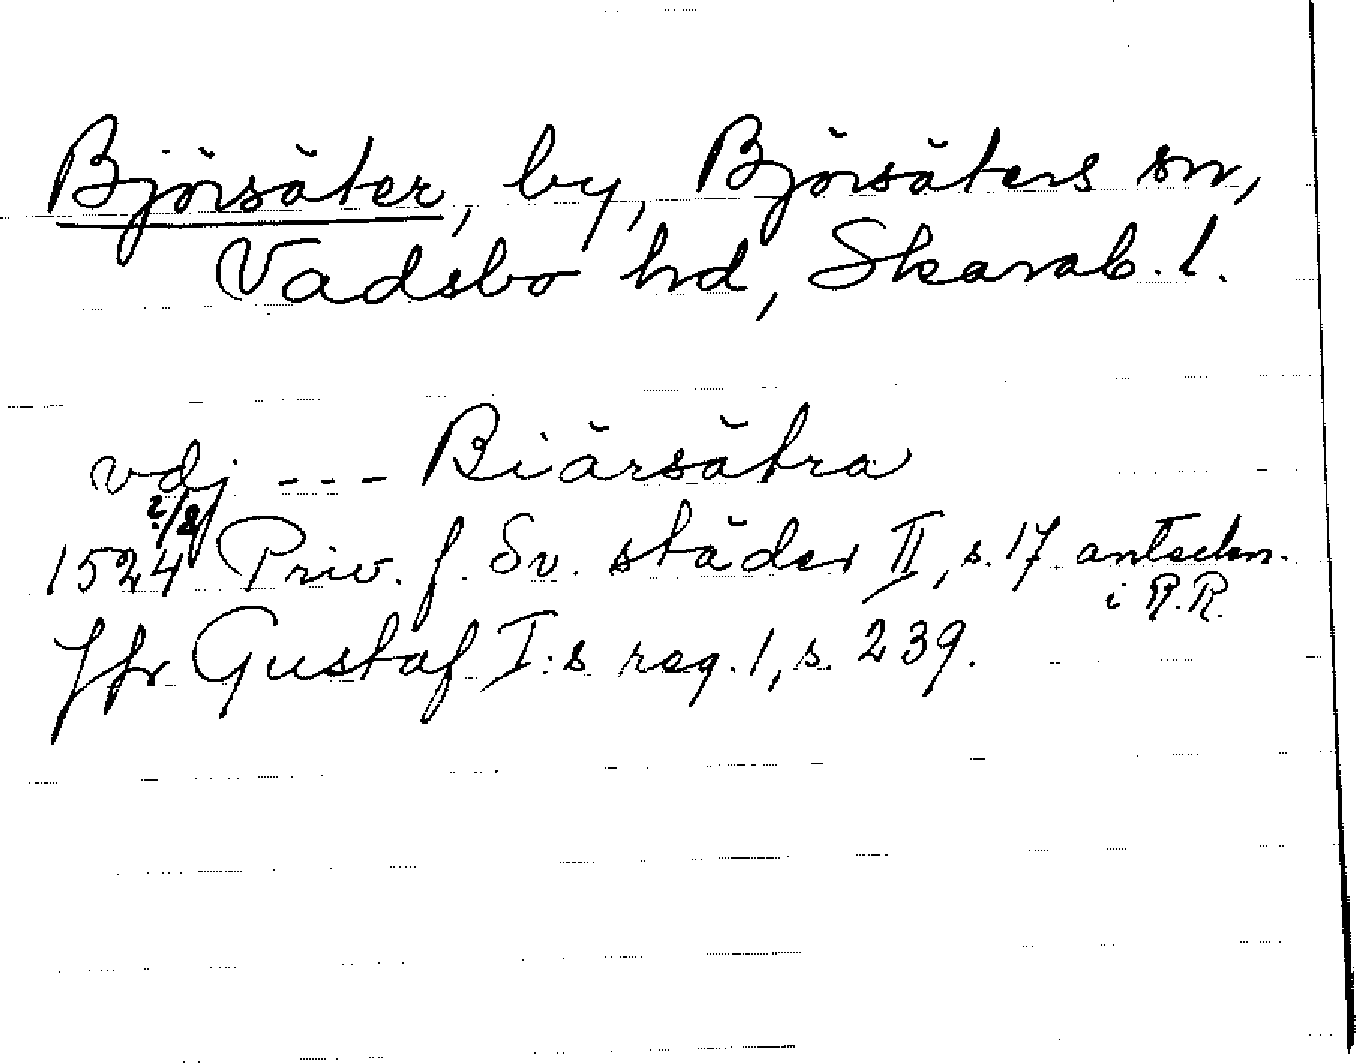 Björsäter, by, Björsäters sn,
Vadsbo hd, Skarab. l.
vdj --- Biärsätra
2/8
1524 Priv. f. Sv. städer II, s. 17 anteckn.
i R.R.
Jfr Gustaf I:s reg. 1, s. 239.